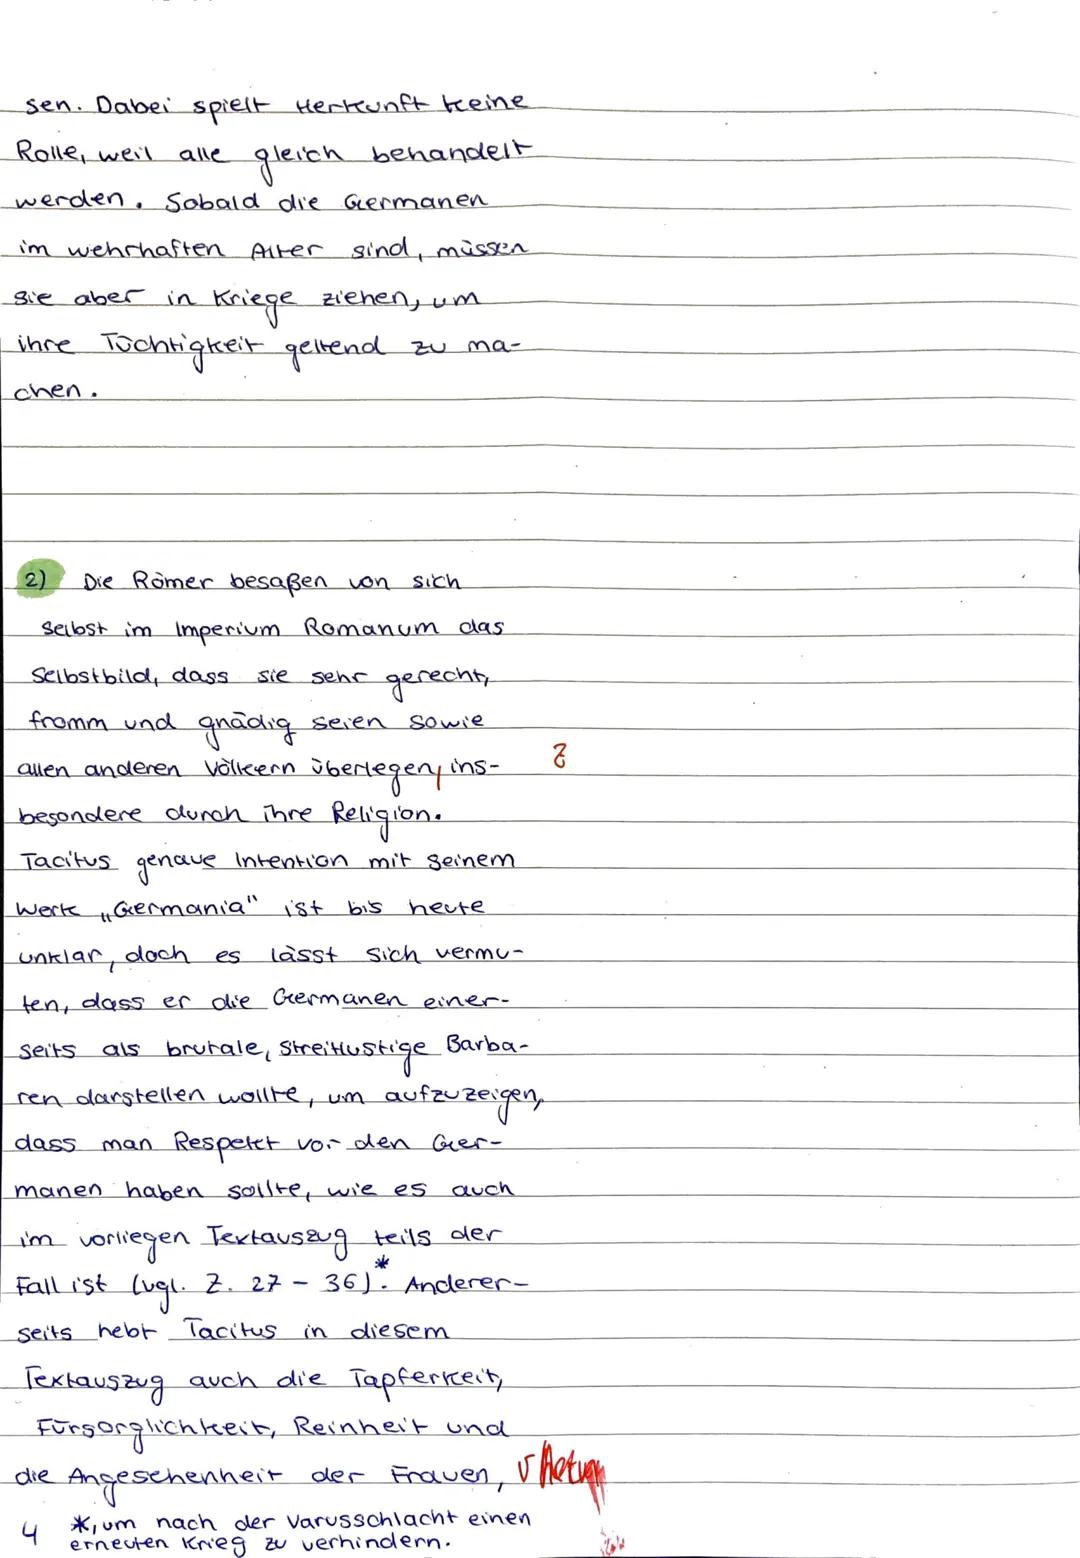 sen. Dabei spielt Herkunft keine
Rolle, weil alle gleich behandelt
werden. Sobald die Germanen
im wehrhaften Alter sind, müssen
sie aber in Kriege ziehen, um
ihre Tüchtigkeit geltend zu ma-
chen.
2) Die Römer besaßen von sich
selbst im Imperium Romanum das
Selbstbild, dass sie sehr gerecht,
fromm und gnädig seien sowie
allen anderen Völkern überlegen, ins-
besondere durch ihre Religion.
Tacitus genaue Intention mit seinem
Werk „Germania" ist bis heute
unklar, doch es lässt sich vermu-
ten, dass er die Germanen einer-
seits als brutale, streitlustige Barba-
ren darstellen wollte, um aufzuzeigen,
dass man Respekt vor den Ger-
manen haben sollte, wie es auch
im vorliegen Textauszug teils der
Fall ist (vgl. Z. 27 - 36)*. Anderer-
seits hebt Tacitus in diesem
Textauszug auch die Tapferkeit,
Fürsorglichkeit, Reinheit und
die Angesehenheit der Frauen,
4 *, um nach der Varusschlacht einen
erneuten Krieg zu verhindern.